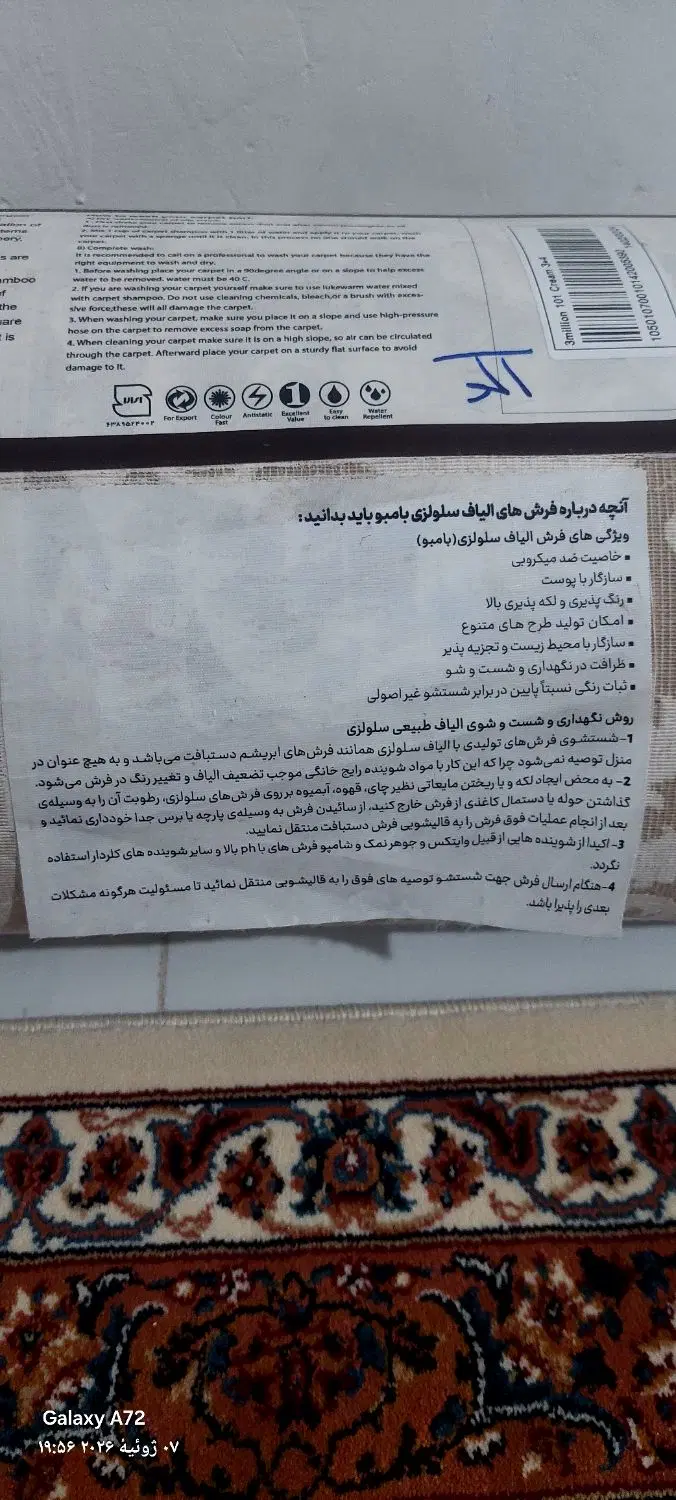 2. Mix 1 cup of carpet shampoo with 1 liter of water and apply it to your carpet. wash
your carpet with a sponge until it is clean. In this process no one should walk on the
carpet.
B) Complete wash:
It is recommended to call on a professional to wash your carpet because they have the
right equipment to wash and dry.
1. Before washing place your carpet in a 90degree angle or on a slope to help excess
water to be removed. water must be 40 C.
2. If you are washing your carpet yourself make sure to use lukewarm water mixed
with carpet shampoo. Do not use cleaning chemicals, bleach,or a brush with exces-
sive force,these will all damage the carpet.
3. When washing your carpet, make sure you place it on a slope and use high-pressure
hose on the carpet to remove excess soap from the carpet.
4. When cleaning your carpet make sure it is on a high slope, so air can be circulated
through the carpet. Afterward place your carpet on a sturdy flat surface to avoid
damage to it.
s are
mboo
f
the
uare
t is
3million 101 Cream 3x4
۶۳۸۹۵۲۴۰۰۲
For Export
Colour
Fast
Antistatic
Excellent
Value
Easy
to clean
Water
Repellent
آنچه درباره فرش های الیاف سلولزی بامبو باید بدانید:
ویژگی های فرش الیاف سلولزی(بامبو)
▪ خاصیت ضد میکروبی
▪ سازگار با پوست
▪ رنگ پذیری و لکه پذیری بالا
▪ امکان تولید طرح های متنوع
▪ سازگار با محیط زیست و تجزیه پذیر
▪ ظرافت در نگهداری و شست و شو
▪ ثبات رنگی نسبتاً پایین در برابر شستشو غیر اصولی
روش نگهداری و شست و شوی الیاف طبیعی سلولزی
1-شستشوی فرش‌های تولیدی با الیاف سلولزی همانند فرش‌های ابریشم دستبافت می‌باشد و به هیچ عنوان در
منزل توصیه نمی‌شود چرا که این کار با مواد شوینده رایج خانگی موجب تضعیف الیاف و تغییر رنگ در فرش می‌شود.
2- به محض ایجاد لکه و یا ریختن مایعاتی نظیر چای، قهوه، آبمیوه بر روی فرش‌های سلولزی، رطوبت آن را به وسیله‌ی
گذاشتن حوله یا دستمال کاغذی از فرش خارج کنید، از سائیدن فرش به وسیله‌ی پارچه یا برس جدا خودداری نمائید و
بعد از انجام عملیات فوق فرش را به قالیشویی فرش دستبافت منتقل نمایید.
3- اکیدا از شوینده هایی از قبیل وایتکس و جوهر نمک و شامپو فرش های با ph بالا و سایر شوینده های کلردار استفاده
نگردد.
4-هنگام ارسال فرش جهت شستشو توصیه های فوق را به قالیشویی منتقل نمائید تا مسئولیت هرگونه مشکلات
بعدی را پذیرا باشد.
Galaxy A72
۰۷ ژوئیهٔ ۲۰۲۶ ۱۹:۵۶